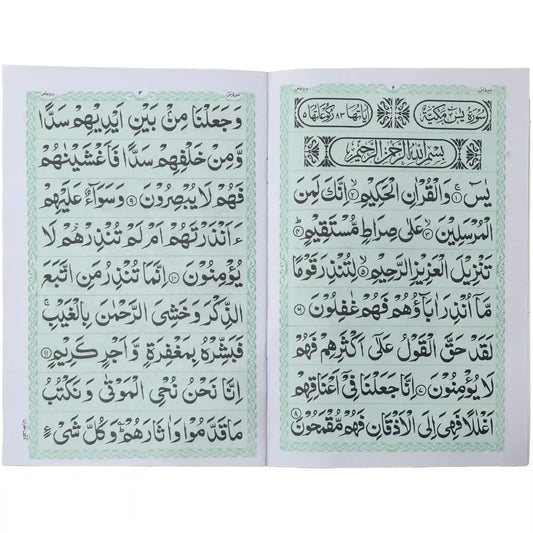 ۲
سُوْرَةُ يٰسٓ مَكِّيَّةٌ اٰيَاتُهَا ٨٣ رُكُوْعَاتُهَا ٥
بِسْمِ اللّٰهِ الرَّحْمٰنِ الرَّحِيْمِ
يٰسٓ ۝١ وَالْقُرْاٰنِ الْحَكِيْمِ ۝٢ اِنَّكَ لَمِنَ
الْمُرْسَلِيْنَ ۝٣ عَلٰى صِرَاطٍ مُّسْتَقِيْمٍ ۝٤
تَنْزِيْلَ الْعَزِيْزِ الرَّحِيْمِ ۝٥ لِتُنْذِرَ قَوْمًا
مَّاۤ اُنْذِرَ اٰبَآؤُهُمْ فَهُمْ غٰفِلُوْنَ ۝٦
لَقَدْ حَقَّ الْقَوْلُ عَلٰۤى اَكْثَرِهِمْ فَهُمْ
لَا يُؤْمِنُوْنَ ۝٧ اِنَّا جَعَلْنَا فِيْۤ اَعْنَاقِهِمْ
اَغْلٰلًا فَهِيَ اِلَى الْاَذْقَانِ فَهُمْ مُّقْمَحُوْنَ ۝٨
۳
وَجَعَلْنَا مِنْۢ بَيْنِ اَيْدِيْهِمْ سَدًّا
وَّمِنْ خَلْفِهِمْ سَدًّا فَاَغْشَيْنٰهُمْ
فَهُمْ لَا يُبْصِرُوْنَ ۝٩ وَسَوَآءٌ عَلَيْهِمْ
ءَاَنْذَرْتَهُمْ اَمْ لَمْ تُنْذِرْهُمْ لَا
يُؤْمِنُوْنَ ۝١٠ اِنَّمَا تُنْذِرُ مَنِ اتَّبَعَ
الذِّكْرَ وَخَشِيَ الرَّحْمٰنَ بِالْغَيْبِ ۚ
فَبَشِّرْهُ بِمَغْفِرَةٍ وَّاَجْرٍ كَرِيْمٍ ۝١١
اِنَّا نَحْنُ نُحْيِ الْمَوْتٰى وَنَكْتُبُ
مَا قَدَّمُوْا وَاٰثَارَهُمْ ؕ وَكُلَّ شَيْءٍ